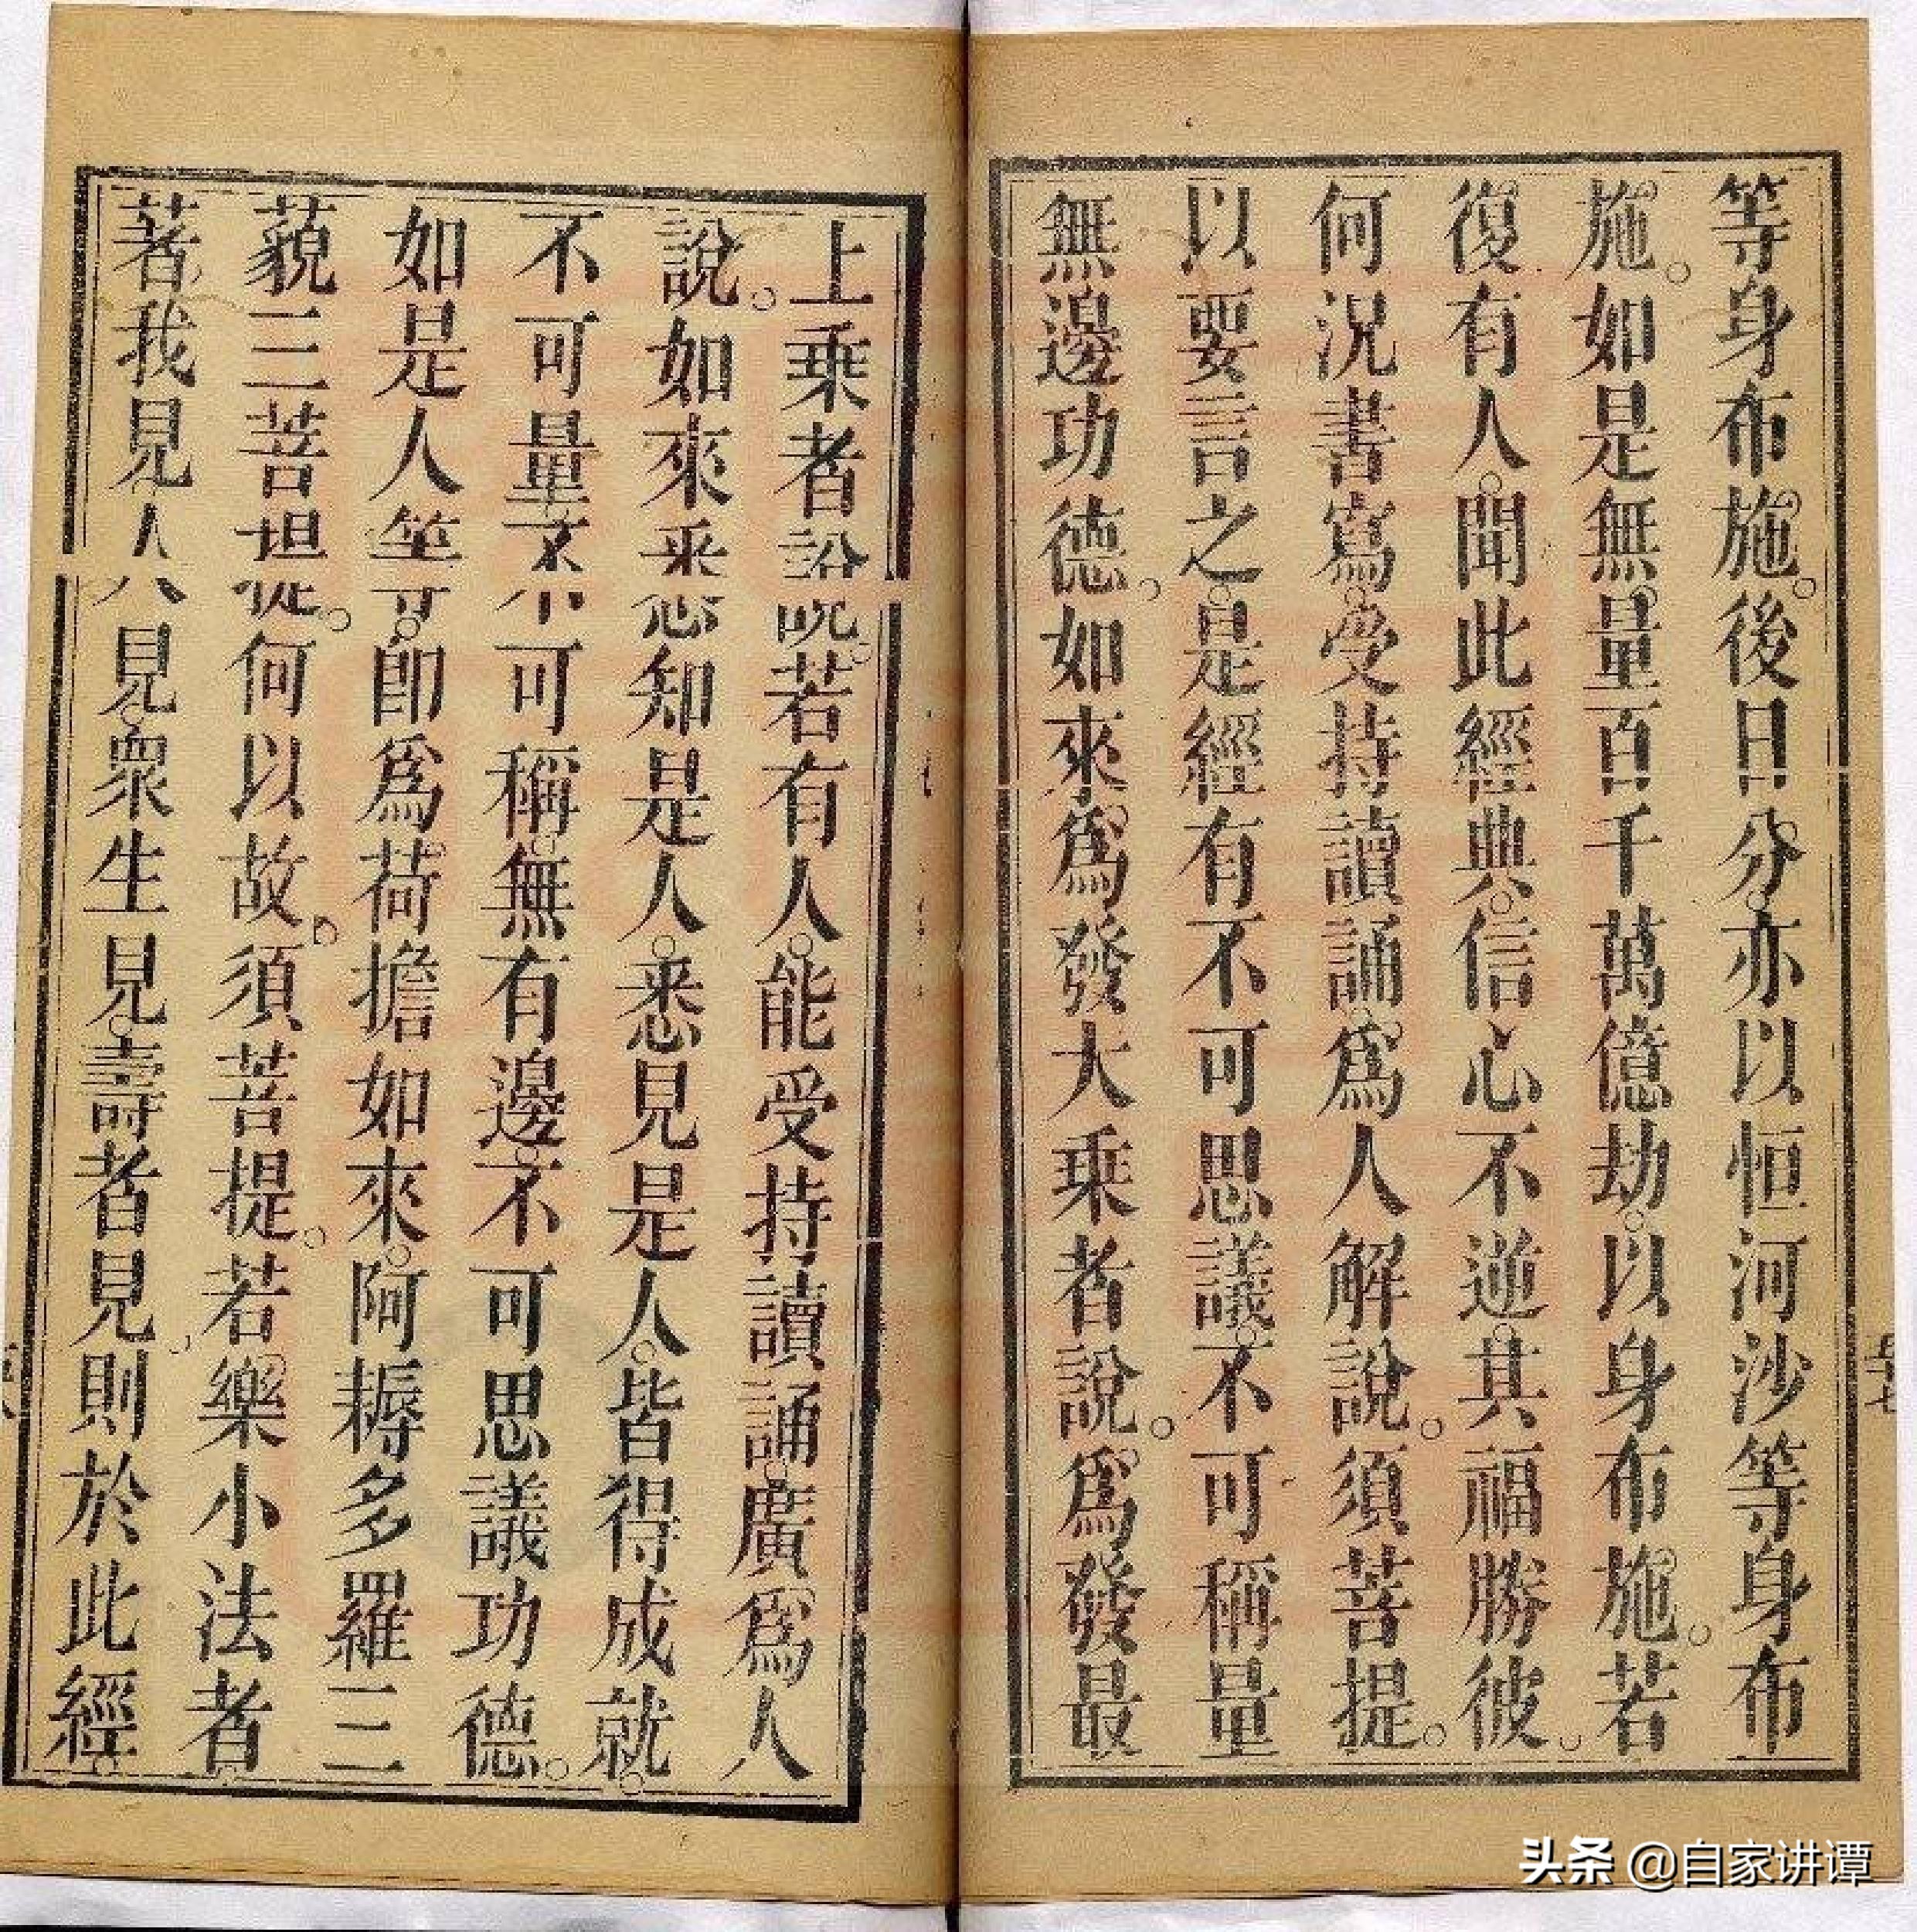 等身布施。後日分。亦以恒河沙等身布
施。如是無量百千萬億劫。以身布施。若
復有人。聞此經典。信心不逆。其福勝彼。
何況書寫。受持讀誦。爲人解說。須菩提。
以要言之。是經有不可思議。不可稱量
無邊功德。如來爲發大乘者說。爲發最
上乘者說。若有人。能受持讀誦。廣爲人
說。如來悉知是人。悉見是人。皆得成就。
不可量。不可稱。無有邊。不可思議功德。
如是人等。即爲荷擔如來。阿耨多羅三
藐三菩提。何以故。須菩提。若樂小法者。
著我見人見。衆生見。壽者見。則於此經。
头条 @自家讲谭